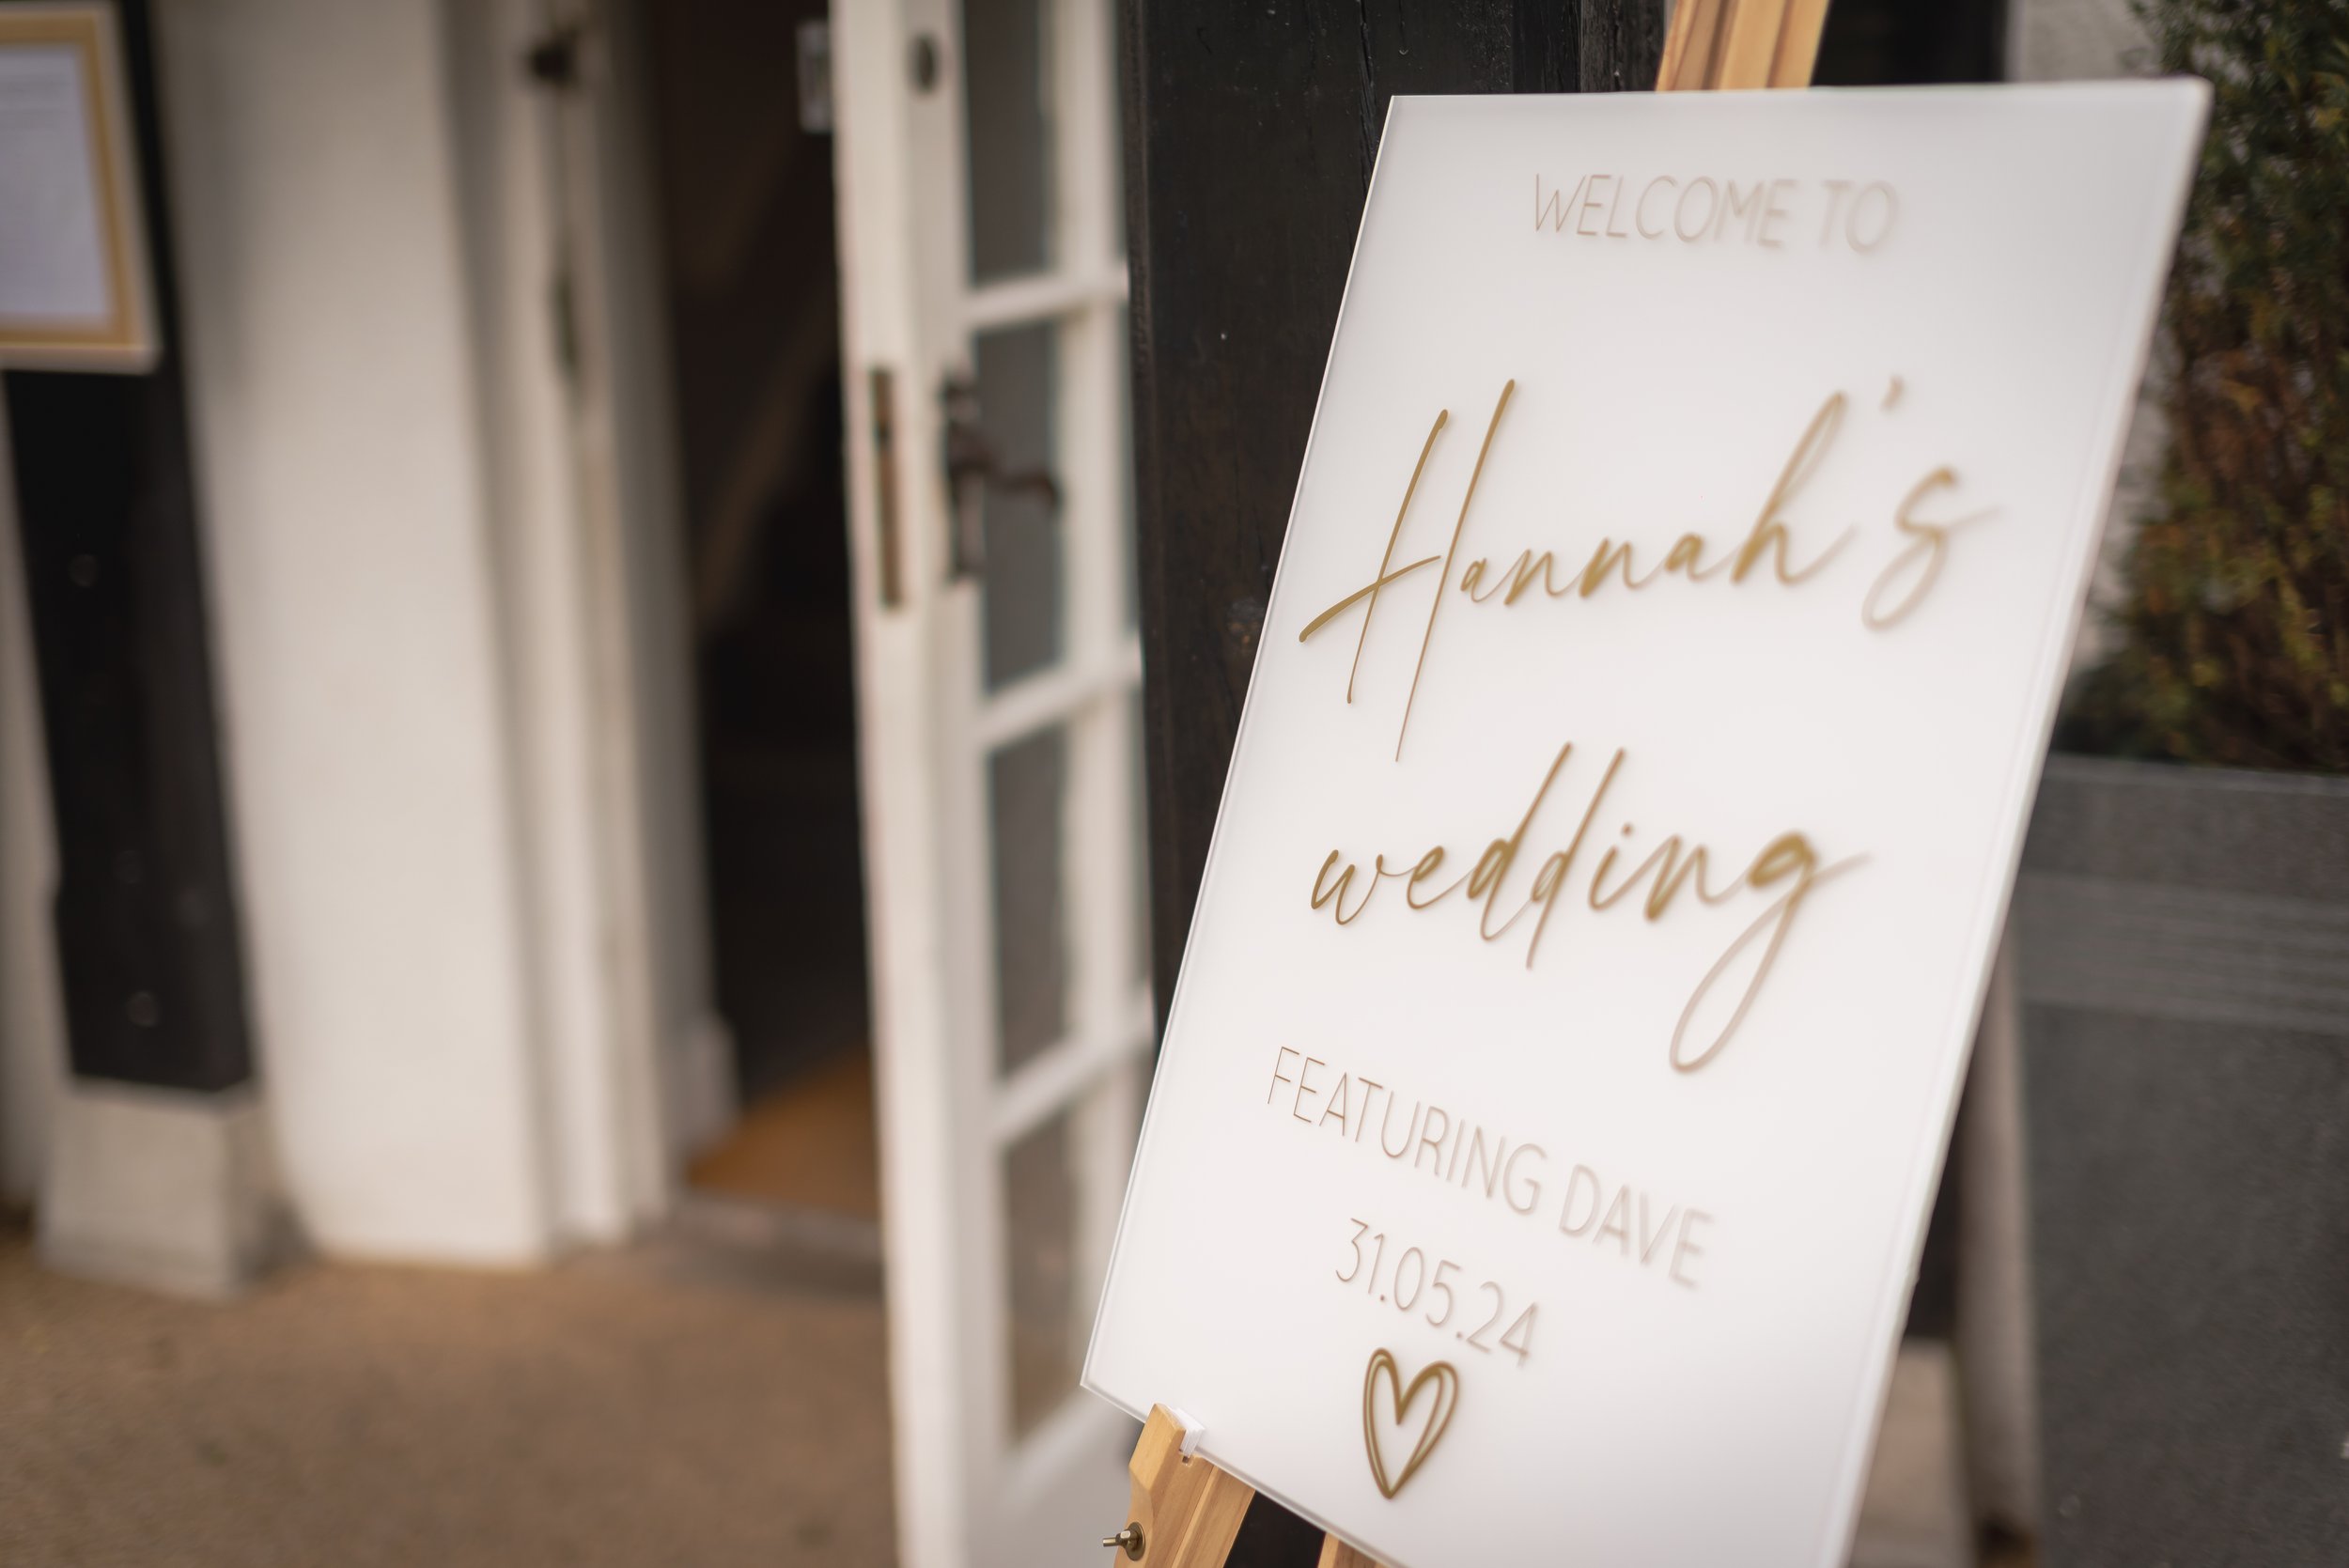 WELCOME TO
Hannah's
wedding
FEATURING DAVE
31.05.24